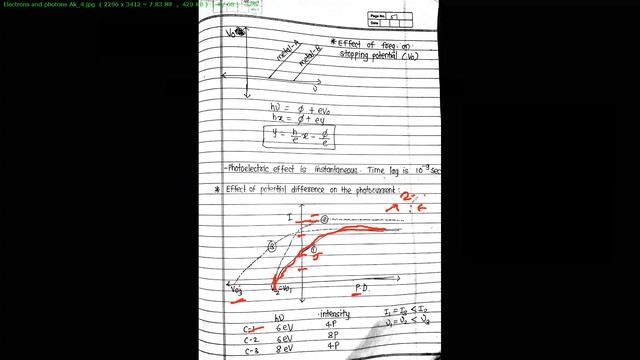 Electrons and photons Ak_4.jpg ( 2296 x 3412 = 7.83 MP ,
Page No. 57
Date
V₀
metal-A
metal-B
* Effect of freq. on
stopping potential (V₀)
υ
hυ = ϕ + eV₀
hx = ϕ + ey
y = h/e x - ϕ/e
-Photoelectric effect is instantaneous. Time lag is 10⁻⁹ sec
* Effect of potential difference on the photocurrent:
I
②
③
①
V₀₃
V₀₂=V₀₁
P.D.
hυ intensity
C-1 6eV 4P
C-2 6eV 8P
C-3 8eV 4P
υ₁ = υ₂ < υ₃